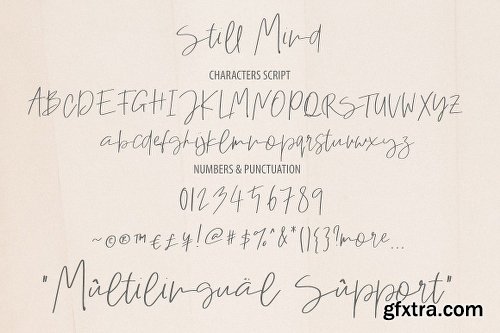 Still Mind
CHARACTERS SCRIPT
ABCDEFGHIJKLMNOPQRSTUVWXYZ
abcdefghijklmnopqrstuvwxyz
NUMBERS & PUNCTUATION
0123456789
~©®™€£¥!@#$%^&*(){}?more...
"Mûltilinguäl Sûpport"
gfxtra.com